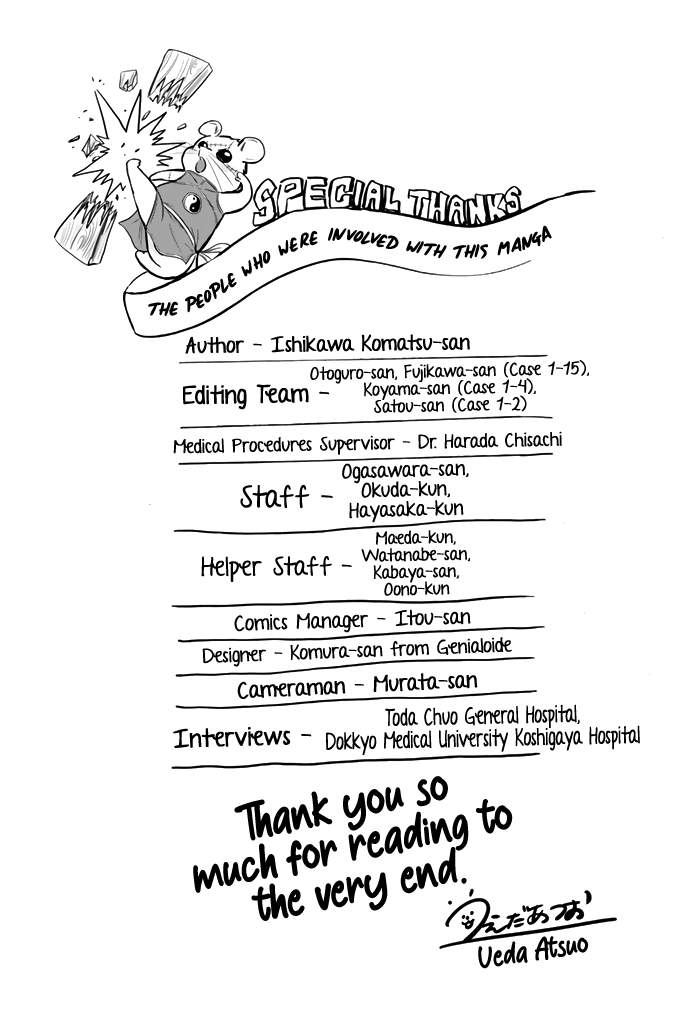 SPECIAL THANKS
THE PEOPLE WHO WERE INVOLVED WITH THIS MANGA
Author – Ishikawa Komatsu-san
Editing Team –
Otoguro-san, Fujikawa-san (Case 1-15),
Koyama-san (Case 1-4),
Satou-san (Case 1-2)
Medical Procedures Supervisor – Dr. Harada Chisachi
Staff –
Ogasawara-san,
Okuda-kun,
Hayasaka-kun
Helper Staff –
Maeda-kun,
Watanabe-san,
Kabaya-san,
Oono-kun
Comics Manager – Itou-san
Designer – Komura-san from Genialoide
Cameraman – Murata-san
Interviews –
Toda Chuo General Hospital,
Dokkyo Medical University Koshigaya Hospital
Thank you so
much for reading to
the very end.
うえだあつお
Ueda Atsuo